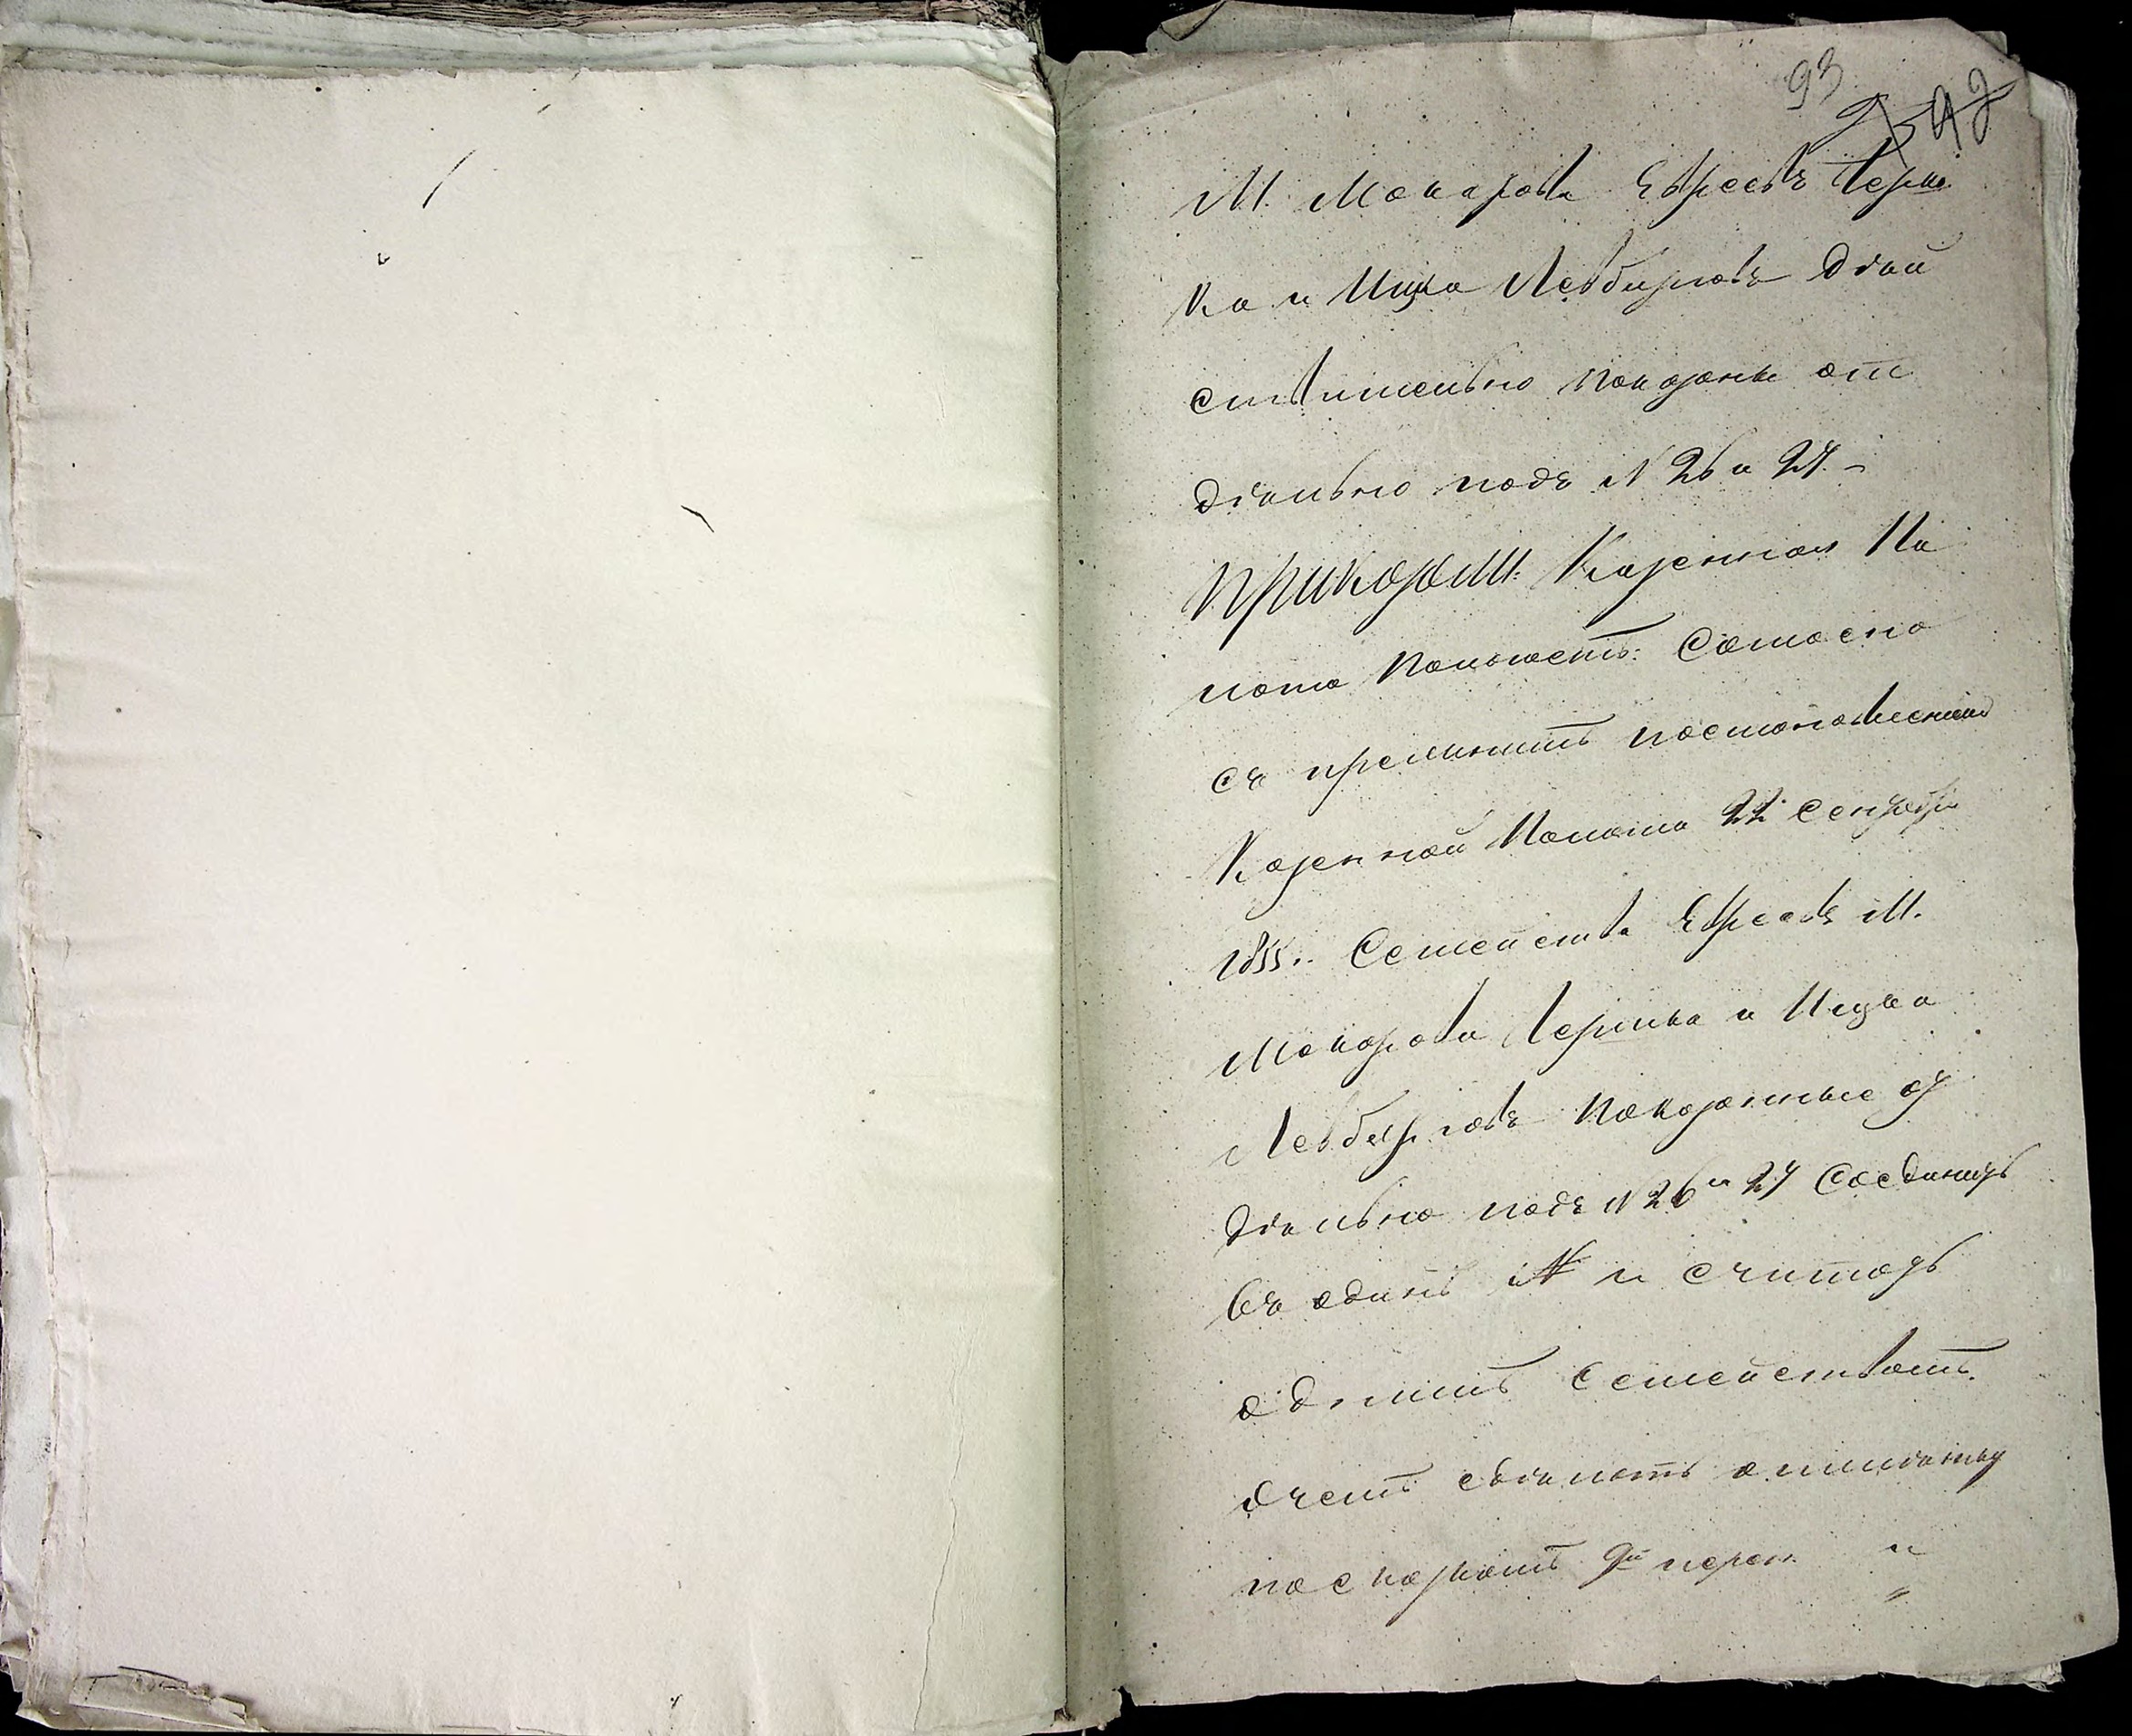 93
М. Макарова Евреевъ Берш
ка и Ицка Левбирговъ дѣй
ствительно показаны от
дѣльно подъ N 26 и 27. –
Приказали: Казенная Па
лата Полагаетъ: Согласно
съ прежнимъ постановленіемъ
Казенной Палаты 22 Сентября
1855.. Семейства Евреевъ М.
Макарова Бершка и Ицка
Левбирговъ показанные от
дѣльно подъ N 26 и 27 Соединить
въ одинъ N и считать
однимъ Семействомъ.
О чемъ сдѣлать отмѣтку
по сказкамъ 9й перен.